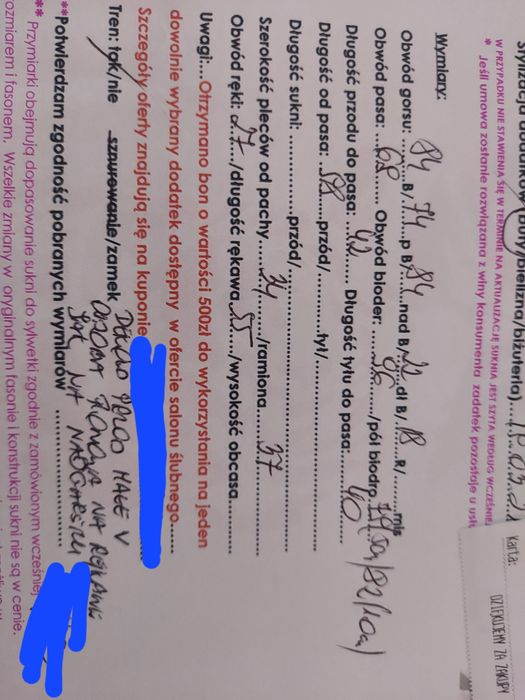 (pony/bielizna/biżuteria)....15.03.21
W PRZYPADKU NIE STAWIENIA SIĘ W TERMINIE NA AKTUALIZACJĘ SUKNIA JEST SZYTA WEDŁUG WCZEŚNIEJ
* Jeśli umowa zostanie rozwiązana z winy konsumenta zadatek pozostaje u usłu
Karta:
DZIĘKUJEMY ZA ZAKUPY
Wymiary:
Obwód gorsu: 84 B/ 74 p B/ 84 nad B/ dł B/ 18 R/ mis
Obwód pasa: 68 Obwód bioder: 96 /pół biodra
Długość przodu do pasa: 42 Długość tyłu do pasa: 40
Długość od pasa: przód/ tył/
Długość sukni: przód/ tył/
Szerokość pleców od pachy 34 /ramiona 37
Obwód ręki: 27 /długość rękawa 55 /wysokość obcasa
Uwagi:...Otrzymano bon o wartości 500zł do wykorzystania na jeden
dowolnie wybrany dodatek dostępny w ofercie salonu ślubnego
Szczegóły oferty znajdują się na kuponie
Tren: tak/nie sznurowanie/zamek
DEKOLT MAŁE V
NA RĘKAWIE
**Potwierdzam zgodność pobranych wymiarów
** Przymiarki obejmują dopasowanie sukni do sylwetki zgodnie z zamówionym wcześniej
ozmiarem i fasonem. Wszelkie zmiany w oryginalnym fasonie i konstrukcji sukni nie są w cenie.